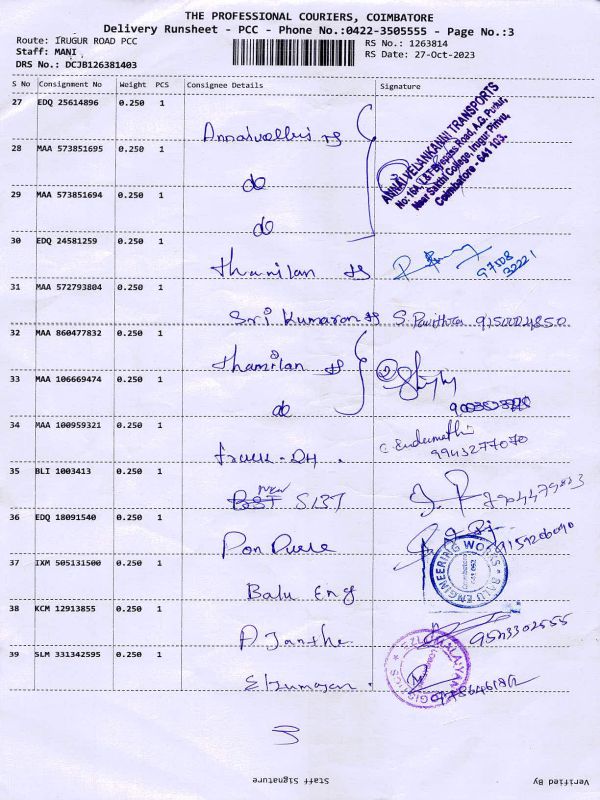 THE PROFESSIONAL COURIERS, COIMBATORE
Delivery Runsheet - PCC - Phone No.:0422-3505555 - Page No.:3
Route: IRUGUR ROAD PCC
Staff: MANI
DRS No.: DCJB126381403
RS No.: 1263814
RS Date: 27-Oct-2023
S No Consignment No Weight PCS Consignee Details Signature
27 EDQ 25614896 0.250 1
ANNAI VELANKANNI TRANSPORTS
Near Sakthi College, Irugur Pirivu,
Coimbatore - 641 103.
28 MAA 573851695 0.250 1 do
29 MAA 573851694 0.250 1 do
30 EDQ 24581259 0.250 1 thamilan
97508
32221
31 MAA 572793804 0.250 1 Sri Kumaran S. Pavithra 9750004850
32 MAA 860477832 0.250 1 thamilan
33 MAA 106669474 0.250 1 do
34 MAA 100959321 0.250 1 track-DH.
9943277070
35 BLI 1003413 0.250 1 SIBT
36 EDQ 18091540 0.250 1 Pon Pure
37 IXM 505131500 0.250 1 Balu Eng
BALU ENGINEERING WORKS
38 KCM 12913855 0.250 1
9543302555
39 SLM 331342595 0.250 1
Staff Signature
Verified By